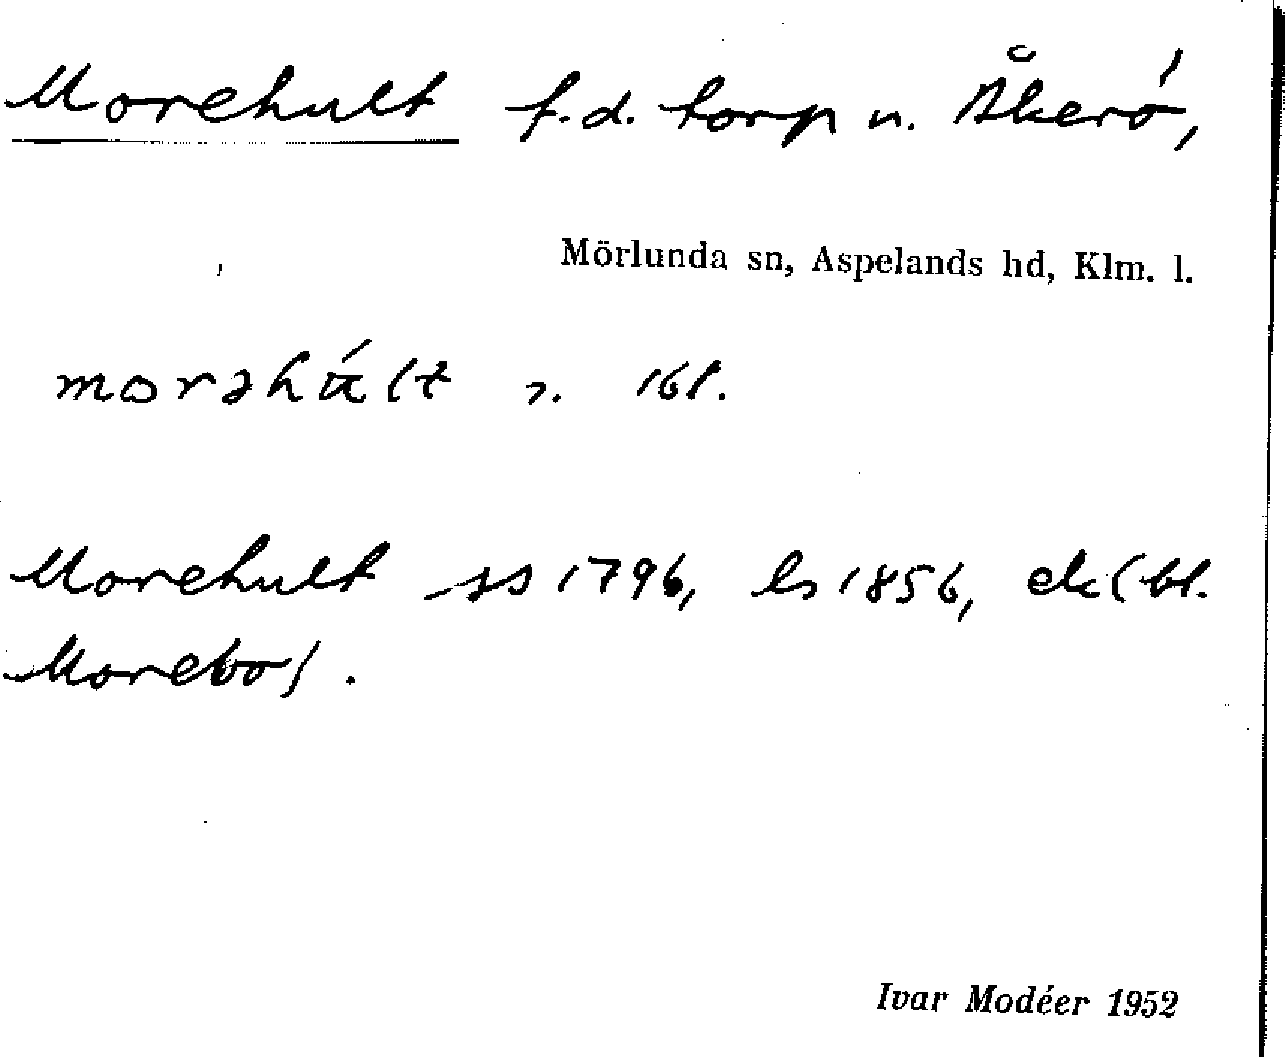 Morehult f.d. torp u. Åkerö,
Mörlunda sn, Aspelands hd, Klm. l.
morəhúlt
Morehult ss 1796, ls 1856, ek (bl.
Morebo).
Ivar Modéer 1952